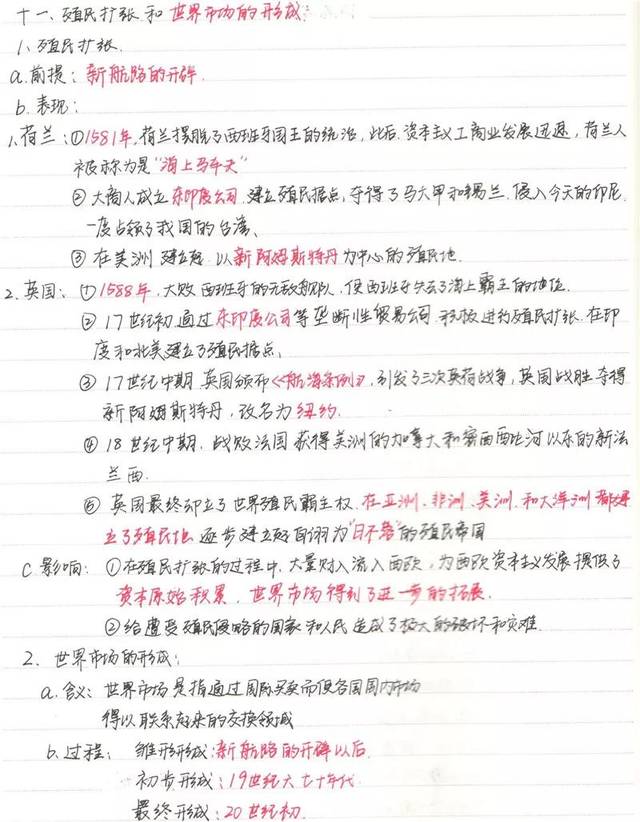 十一、殖民扩张和世界市场的形成
1、殖民扩张
a.前提：新航路的开辟.
b.表现：
1.荷兰：①1581年,荷兰摆脱了西班牙国王的统治,此后.资本主义工商业发展迅速,荷兰人
被称为是“海上马车夫”
②大商人成立东印度公司.建立殖民据点,夺得了马六甲和锡兰.侵入今天的印尼.
一度占领了我国的台湾、
③在美洲建立起以新阿姆斯特丹为中心的殖民地.
2.英国：①1588年,大败西班牙的无敌舰队,使西班牙失去了海上霸主的地位.
②17世纪初通过东印度公司等垄断性贸易公司积极进行殖民扩张.在印
度和北美建立了殖民据点、
③17世纪中期.英国颁布《航海条例》,引发了三次英荷战争,英国战胜夺得
新阿姆斯特丹,改名为纽约.
④18世纪中期.战败法国获得美洲的加拿大和密西西比河以东的新法
兰西.
⑤英国最终确立了世界殖民霸主权.在亚洲、非洲、美洲.和大洋洲都建
立了殖民地.逐步建立起自诩为“日不落”的殖民帝国
C.影响：①在殖民扩张的过程中,大量财入流入西欧,为西欧资本主义发展提供了
资本原始积累.世界市场得到了进一步的拓展.
②给遭受殖民侵略的国家和人民造成了极大的破坏和灾难.
2.世界市场的形成：
a.含义：世界市场是指通过国际买卖而使各国国内市场
得以联系起来的交换领域
b.过程：雏形形成:新航路的开辟以后.
初步形成:19世纪六七十年代.
最终形成:20世纪初.